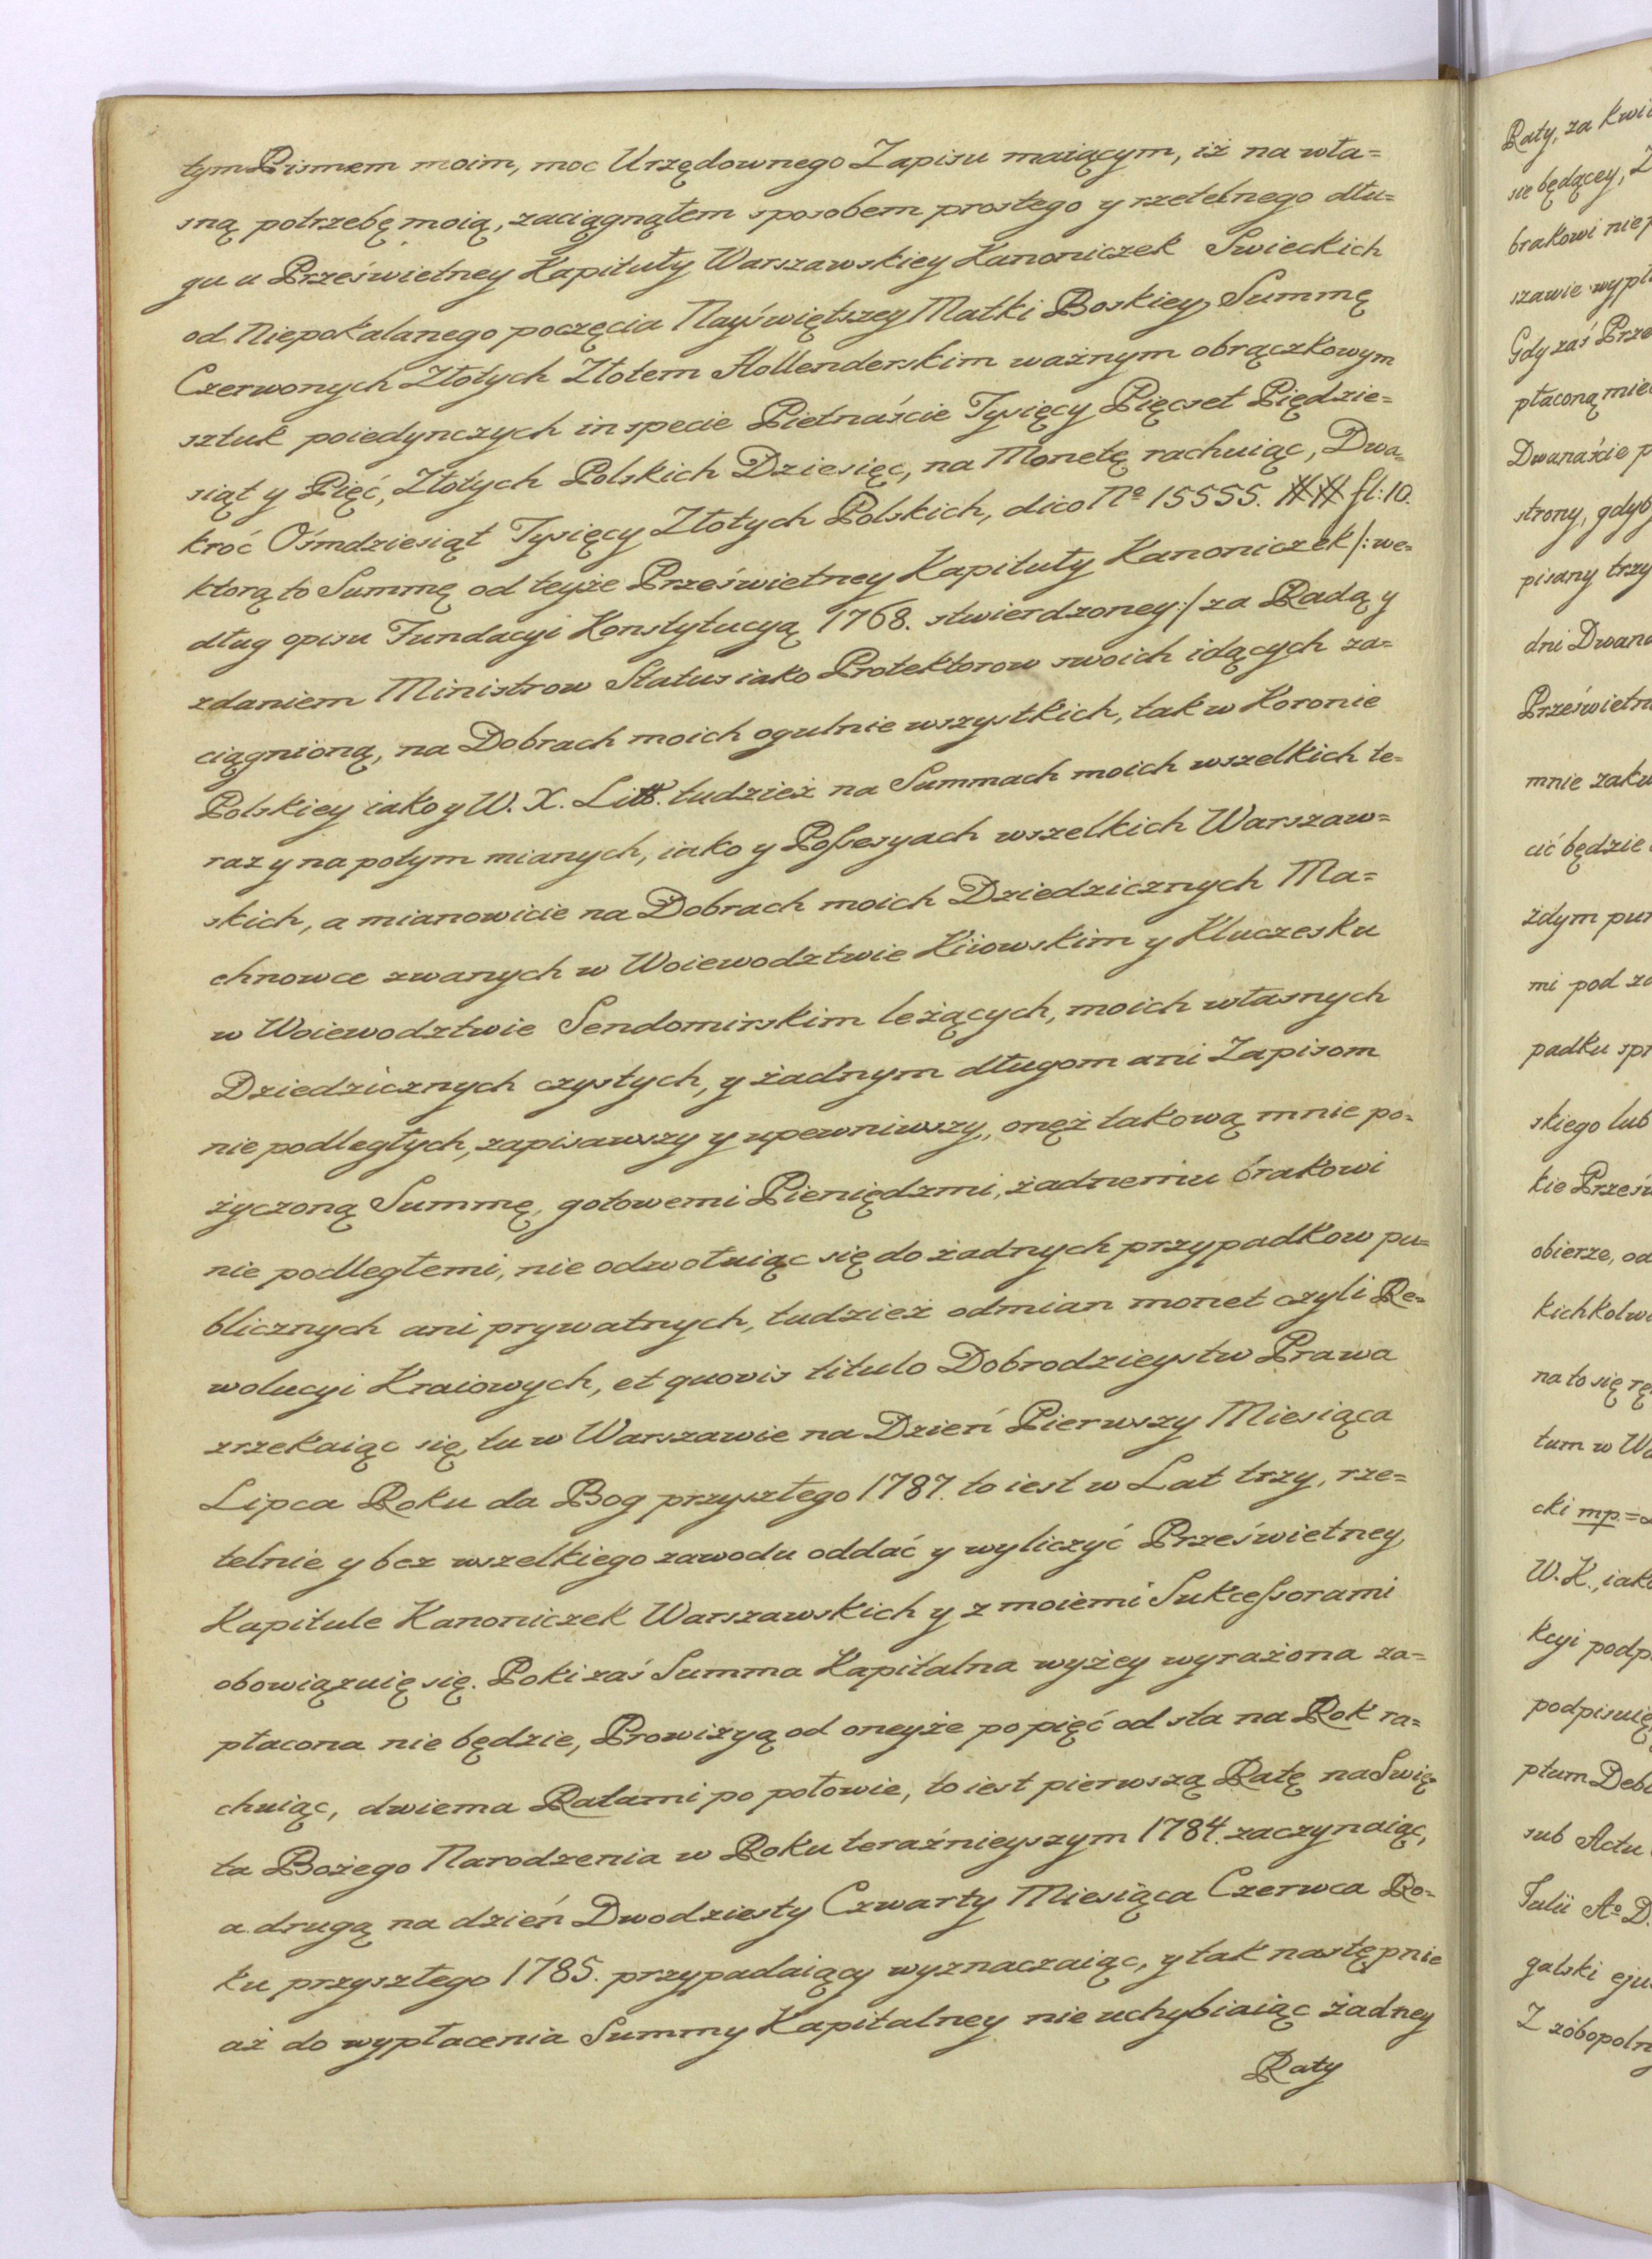 tym Pismem moim, moc Urzędownego Zapisu maiącym, iż na wła=
sną potrzebę moią, zaciągnąłem sposobem prostego y rzetelnego dłu=
gu u Prześwietney Kapituły Warszawskiey Kanoniczek Swieckich
od Niepokalanego poczęcia Nayświętszey Matki Boskiey, Summę
Czerwonych Złotych Złotem Hollenderskim ważnym obrączkowym
sztuk poiedynczych in specie Pietnaście Tysięcy Pięcset Piędzie=
siąt y Pięć, Złotych Polskich Dziesięc, na Monetę rachuiąc, Dwa=
kroć Ośmdziesiąt Tysięcy Złotych Polskich, dico Nº 15555. ## fl: 10.
ktorą to Summę od teyże Prześwietney Kapituły Kanoniczek /: we=
dług opisu Fundacyi Konstytucyą 1768. stwierdzoney :/ za Radą y
zdaniem Ministrow Status iako Protektorow swoich idących za=
ciągnioną, na Dobrach moich ogulnie wszystkich, tak w Koronie
Polskiey iako y W. X. Litt. tudzież na Summach moich wszelkich te=
raz y na potym mianych, iako y Possesyach wszelkich Warszaw=
skich, a mianowicie na Dobrach moich Dziedzicznych Ma=
chnowce zwanych w Woiewodztwie Kiiowskim y Kluczesku
w Woiewodztwie Sendomirskim leżących, moich własnych
Dziedzicznych czystych, y żadnym długom ani Zapisom
nie podległych, zapisawszy y upewniwszy, onęż takową mnie po=
życzoną Summę, gotowemi Pieniędzmi, żadnemu brakowi
nie podległemi, nie odwołuiąc się do żadnych przypadkow pu=
blicznych ani prywatnych, tudzież odmian monet czyli Re=
wolucyi Kraiowych, et quovis titulo Dobrodzieystw Prawa
zrzekaiąc się, tu w Warszawie na Dzień Pierwszy Miesiąca
Lipca Roku da Bog przyszłego 1787. to iest w Lat trzy, rze=
telnie y bez wszelkiego zawodu oddać y wyliczyć Prześwietney,
Kapitule Kanoniczek Warszawskich y z moiemi Sukcessorami
obowiązuię się. Poki zaś Summa Kapitalna wyżey wyrażona za=
płacona nie będzie, Prowizyą od oneyże po pięć od sta na Rok ra=
chuiąc, dwiema Ratami po połowie, to iest pierwszą Ratę na Swię=
ta Bożego Narodzenia w Roku teraźnieyszym 1784. zaczynaiąc,
a drugą na dzień Dwodziesty Czwarty Miesiąca Czerwca Ro=
ku przyszłego 1785. przypadaiący wyznaczaiąc, y tak następnie
aż do wypłacenia Summy Kapitalney nie uchybiaiąc żadney
Raty
Raty, za
się będącey,
brakowi
szawie
Gdy zaś
płaconą
Dwanaście
strony,
pisany trzy
dni
mnie
cić będzie
żdym
mi pod
padku
skiego lub
kie
obierze,
na to się
tum w
cki mp. =
W. K., iako
kcyi
podpisuię
sub Actu
Julii Aº D.
galski
Z